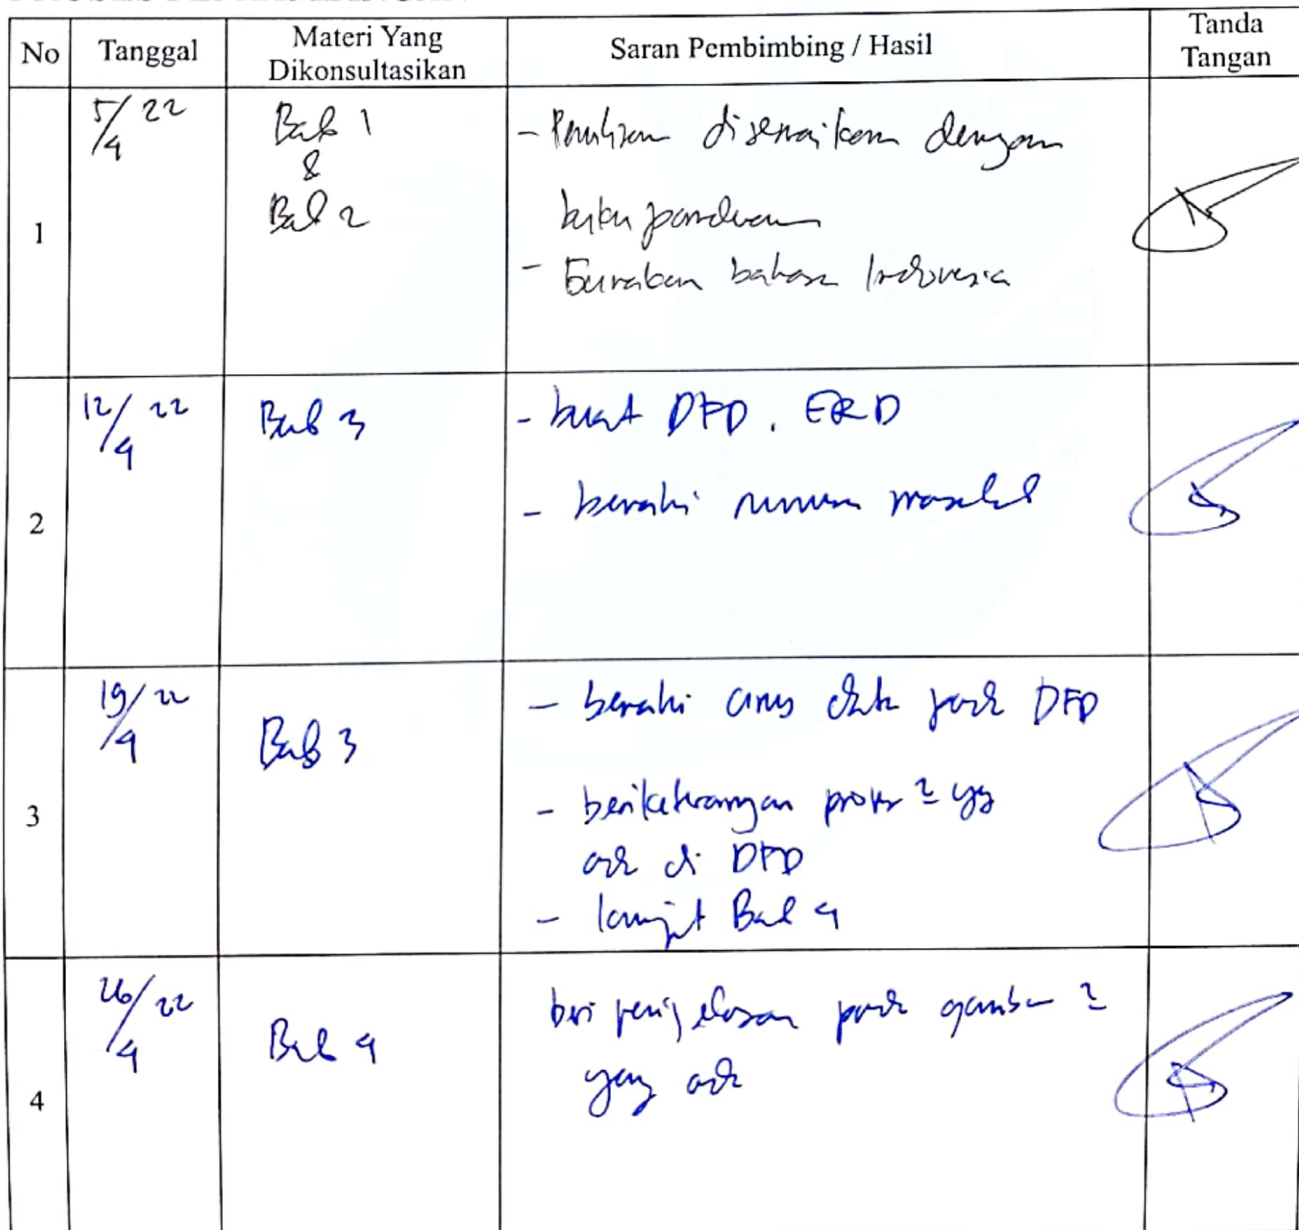 No Tanggal Materi Yang Dikonsultasikan Saran Pembimbing / Hasil Tanda Tangan
1 5/4 22 Bab 1 & Bab 2
- Penulisan disesuaikan dengan
buku panduan
- Gunakan bahasa Indonesia
2 12/4 22 Bab 3
- buat DFD, ERD
- perbaiki rumusan masalah
3 19/4 22 Bab 3
- perbaiki arus data pada DFD
- beri keterangan proses2 yg
ada di DFD
- lanjut Bab 4
4 26/4 22 Bab 4
beri penjelasan pada gambar2
yang ada